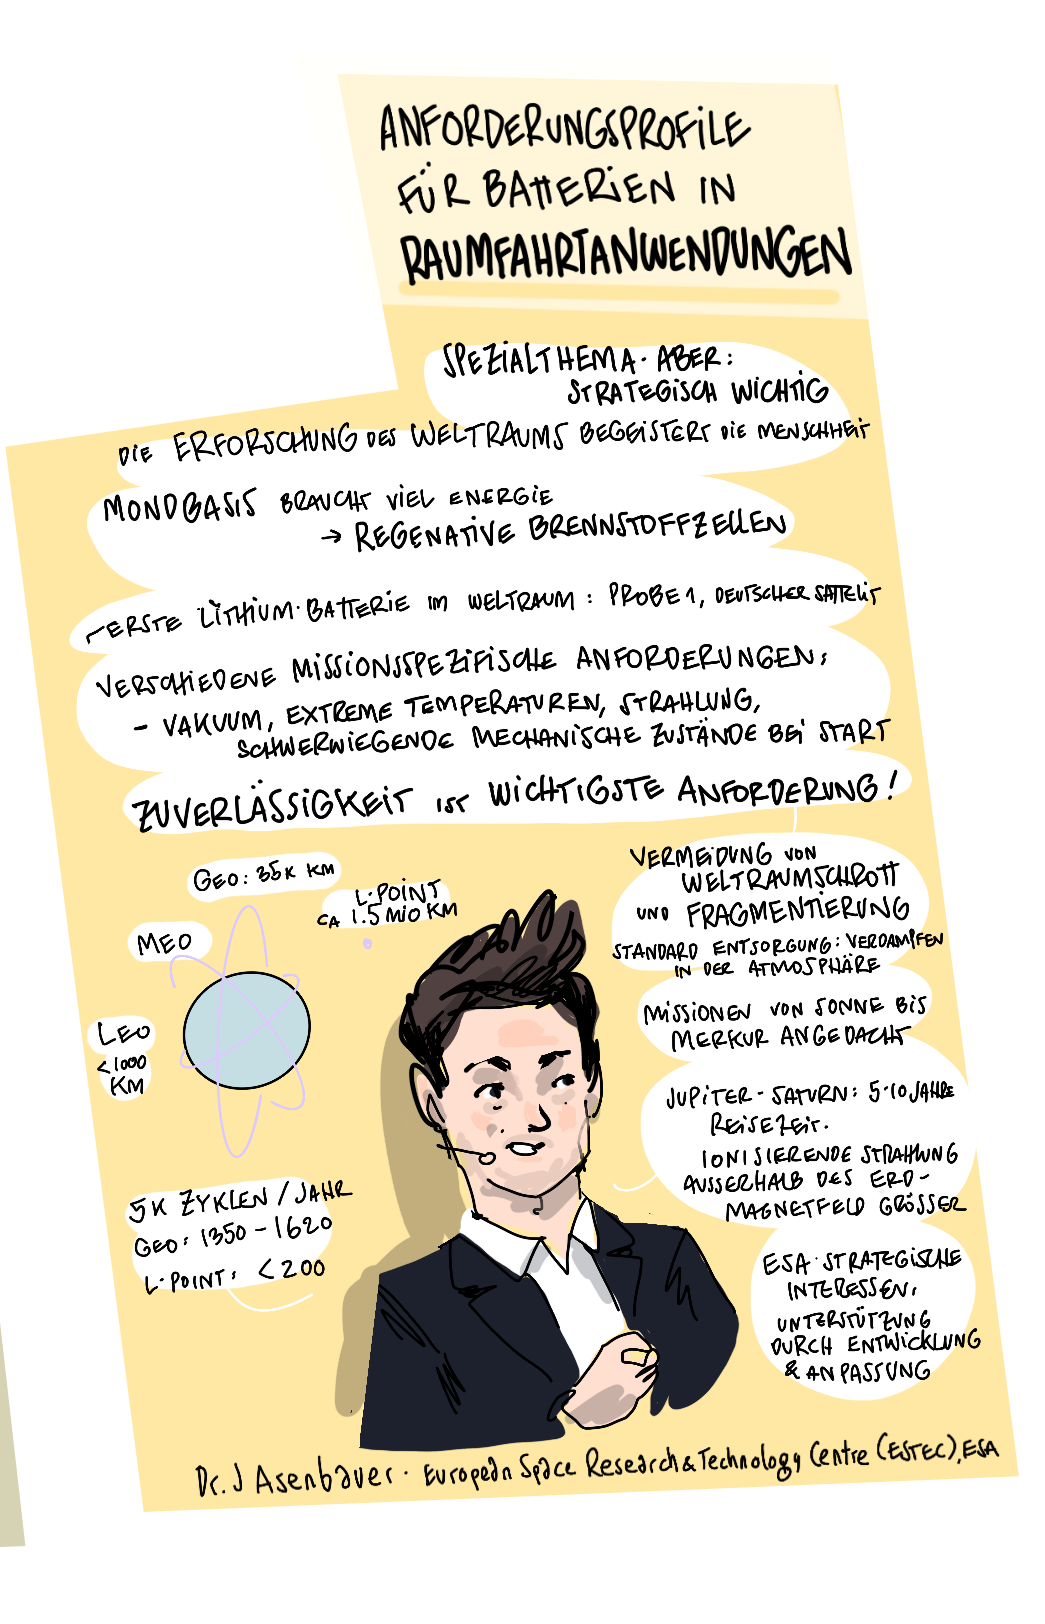 ANFORDERUNGSPROFILE
FÜR BATTERIEN IN
RAUMFAHRTANWENDUNGEN
SPEZIALTHEMA. ABER:
STRATEGISCH WICHTIG
DIE ERFORSCHUNG DES WELTRAUMS BEGEISTERT DIE MENSCHHEIT
MONDBASIS BRAUCHT VIEL ENERGIE
→ REGENATIVE BRENNSTOFFZELLEN
- ERSTE LITHIUM-BATTERIE IM WELTRAUM: PROBE 1, DEUTSCHER SATTELIT
VERSCHIEDENE MISSIONSSPEZIFISCHE ANFORDERUNGEN:
- VAKUUM, EXTREME TEMPERATUREN, STRAHLUNG,
SCHWERWIEGENDE MECHANISCHE ZUSTÄNDE BEI START
ZUVERLÄSSIGKEIT IST WICHTIGSTE ANFORDERUNG!
GEO: 35K KM
L-POINT
CA 1.5 MIO KM
MEO
LEO
<1000
KM
5K ZYKLEN / JAHR
GEO: 1350 - 1620
L-POINT: <200
VERMEIDUNG VON
WELTRAUMSCHROTT
UND FRAGMENTIERUNG
STANDARD ENTSORGUNG: VERDAMPFEN
IN DER ATMOSPHÄRE
MISSIONEN VON SONNE BIS
MERKUR ANGEDACHT
JUPITER - SATURN: 5-10 JAHRE
REISEZEIT.
IONISIERENDE STRAHLUNG
AUSSERHALB DES ERD-
MAGNETFELD GRÖSSER
ESA - STRATEGISCHE
INTERESSEN,
UNTERSTÜTZUNG
DURCH ENTWICKLUNG
& ANPASSUNG
Dr. J Asenbauer · European Space Research & Technology Centre (ESTEC), ESA